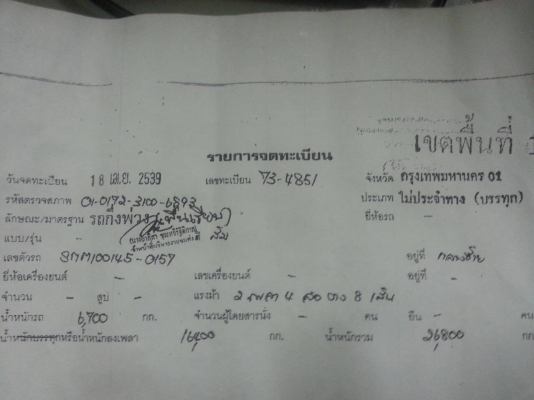 เขตพื้นที่
รายการจดทะเบียน
วันจดทะเบียน 18 เม.ย. 2539 เลขทะเบียน 73-4851 จังหวัด กรุงเทพมหานคร 01
รหัสตรวจสภาพ 01-0172-3100-6893 ประเภท ไม่ประจำทาง (บรรทุก)
ลักษณะ/มาตรฐาน รถกึ่งพ่วง (พื้นเรียบ) ยี่ห้อรถ -
แบบ/รุ่น - สี ส้ม
เลขตัวรถ SMM100145-0157 อยู่ที่
ยี่ห้อเครื่องยนต์ - เลขเครื่องยนต์ - อยู่ที่ -
จำนวน - สูบ - แรงม้า 2 เพลา 4 ล้อ ยาง 8 เส้น
น้ำหนักรถ 6,700 กก. จำนวนผู้โดยสารนั่ง - คน ยืน - คน
น้ำหนักบรรทุกหรือน้ำหนักลงเพลา 16400 กก. น้ำหนักรวม 26,800 กก